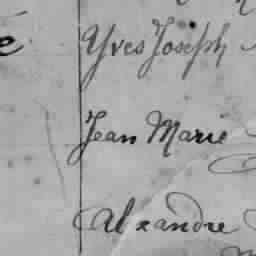 é Yves Joseph
Jean Marie
Alxandre